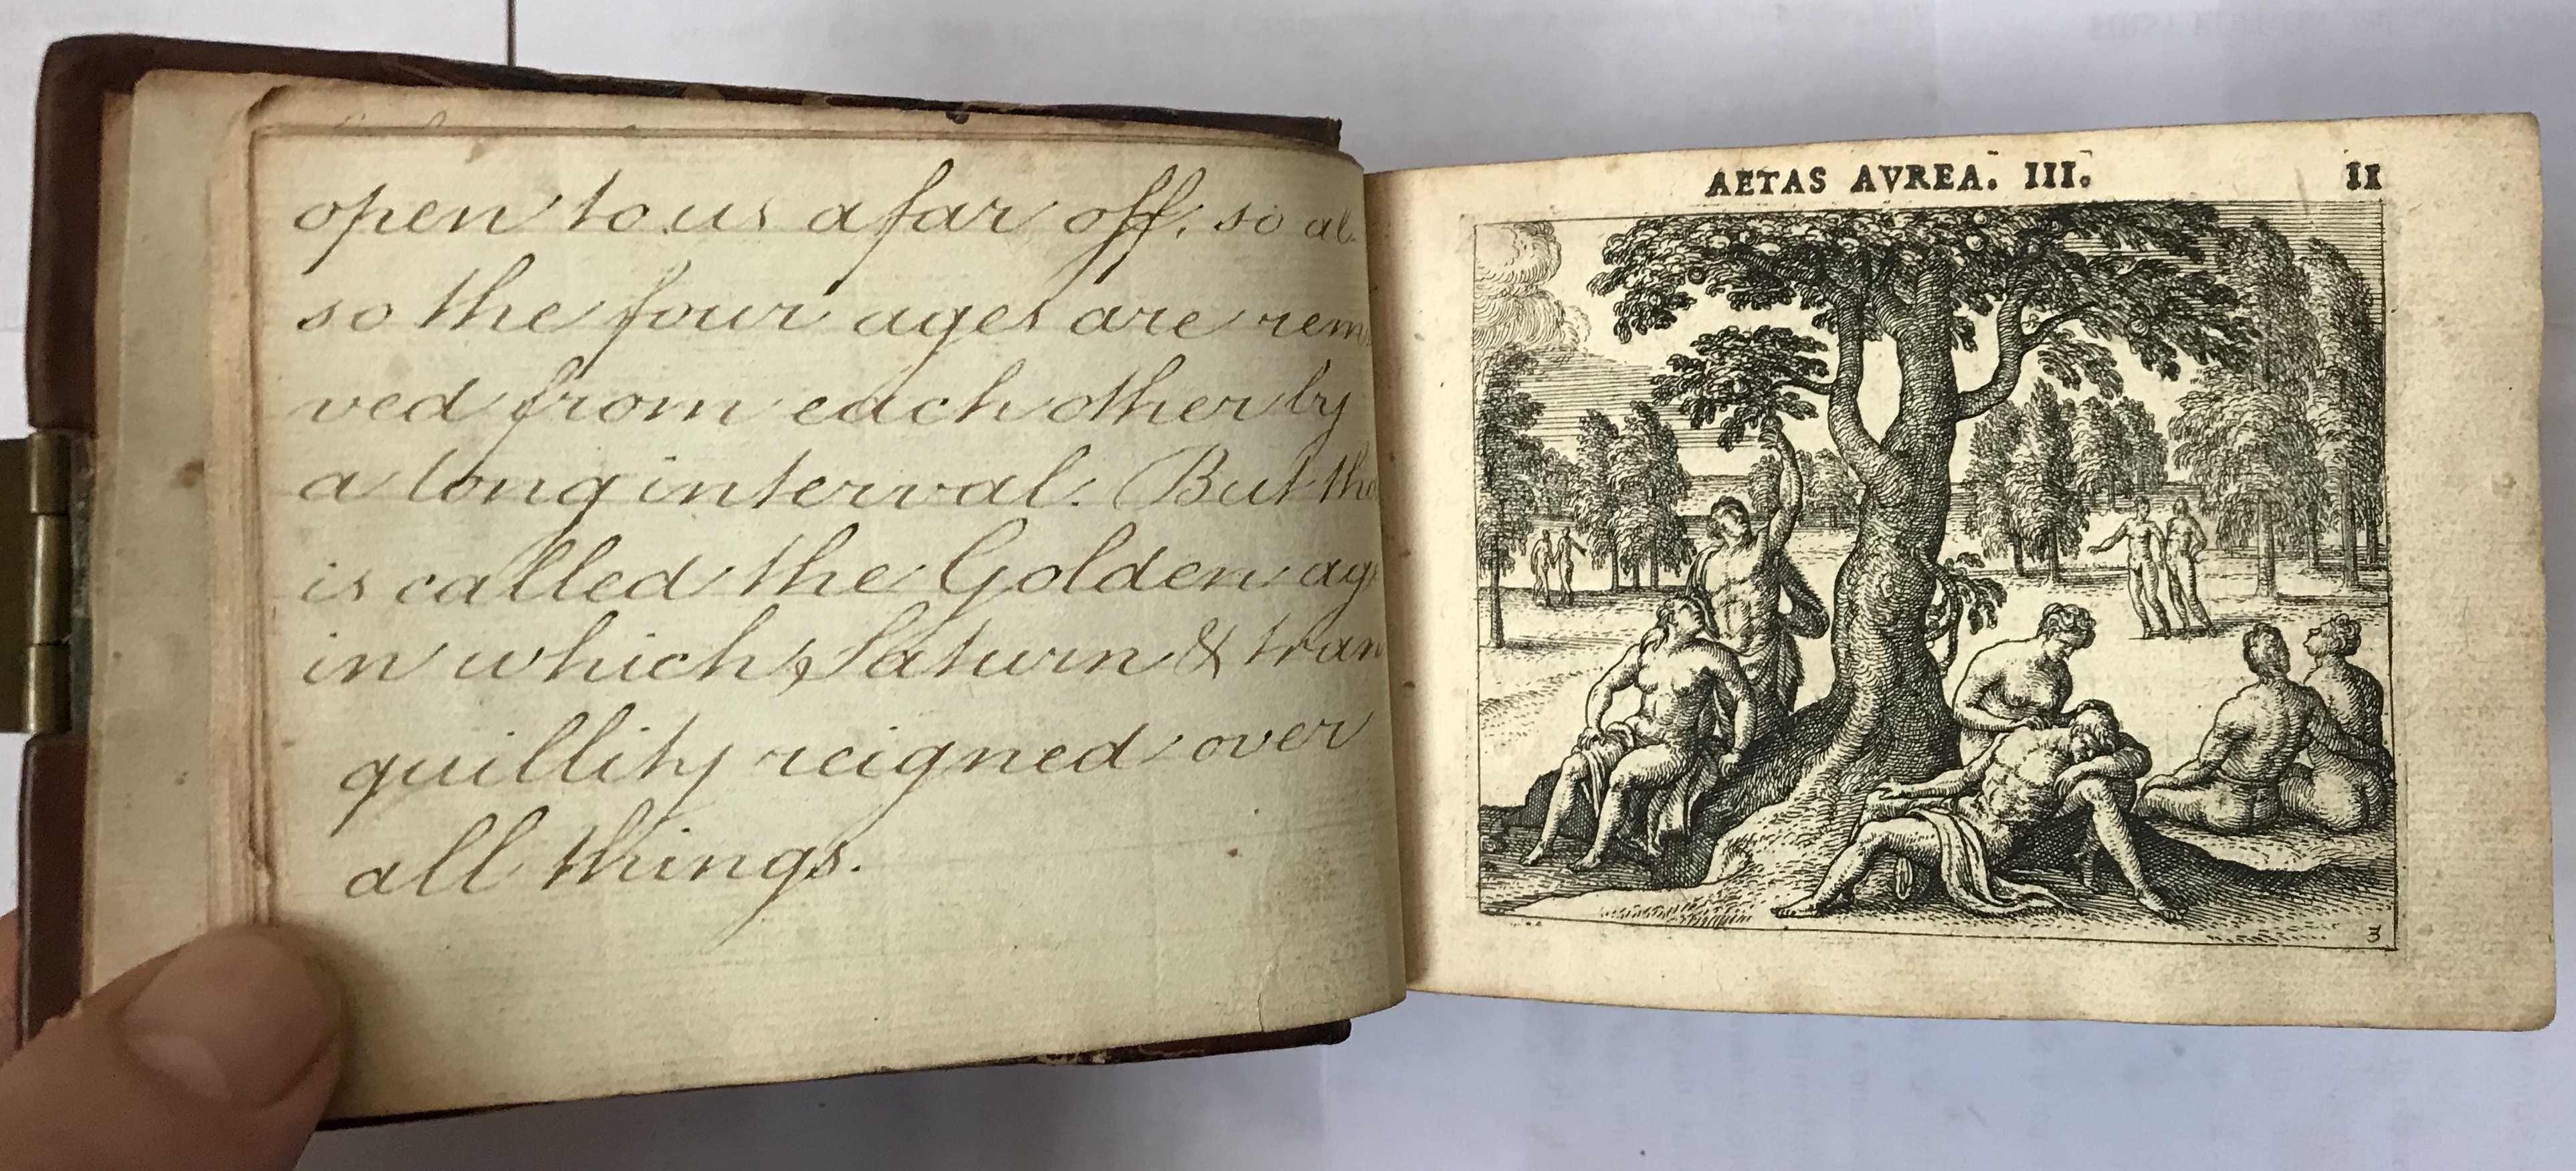 open to us afar off, so al
so the four ages are rem
ved from each other by
a long interval. But tha
is called the Golden age
in which Saturn & tran
quillity reigned over
all things.
AETAS AVREA. III.
II
3